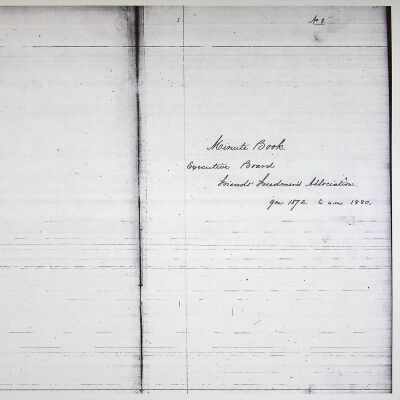 No 2
Minute Book
Executive Board
Friends' Freedmen's Association.
1872. to 1880.